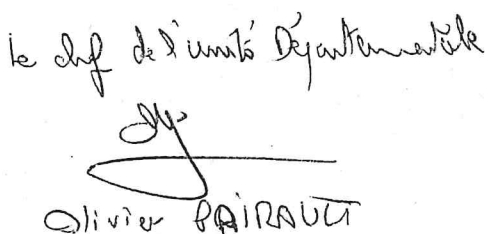 Le chef de l'unité Départementale
Olivier PAIRAULT